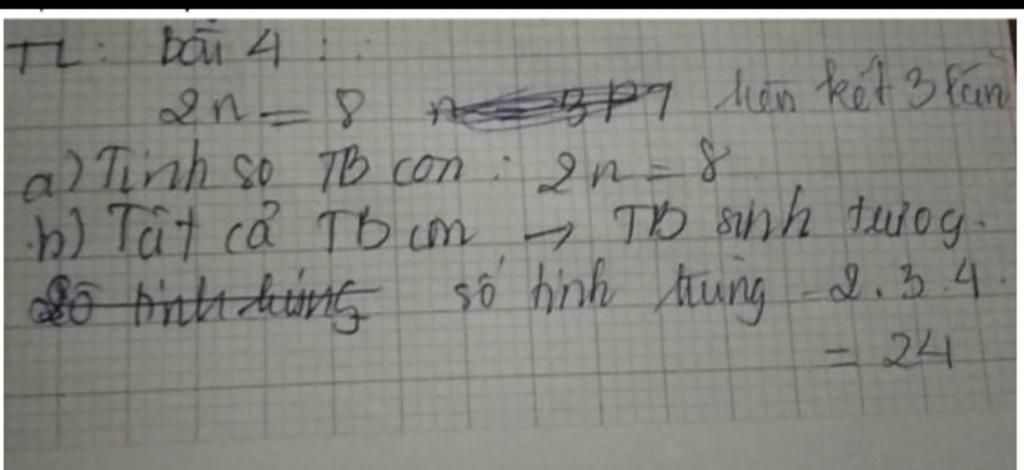 TL: bài 4:
2n = 8 liên kết 3 lần
a) Tính so TB con: 2n = 8
b) Tất cả TB con → TB sinh tưing.
số tinh trùng = 2.3.4.
= 24